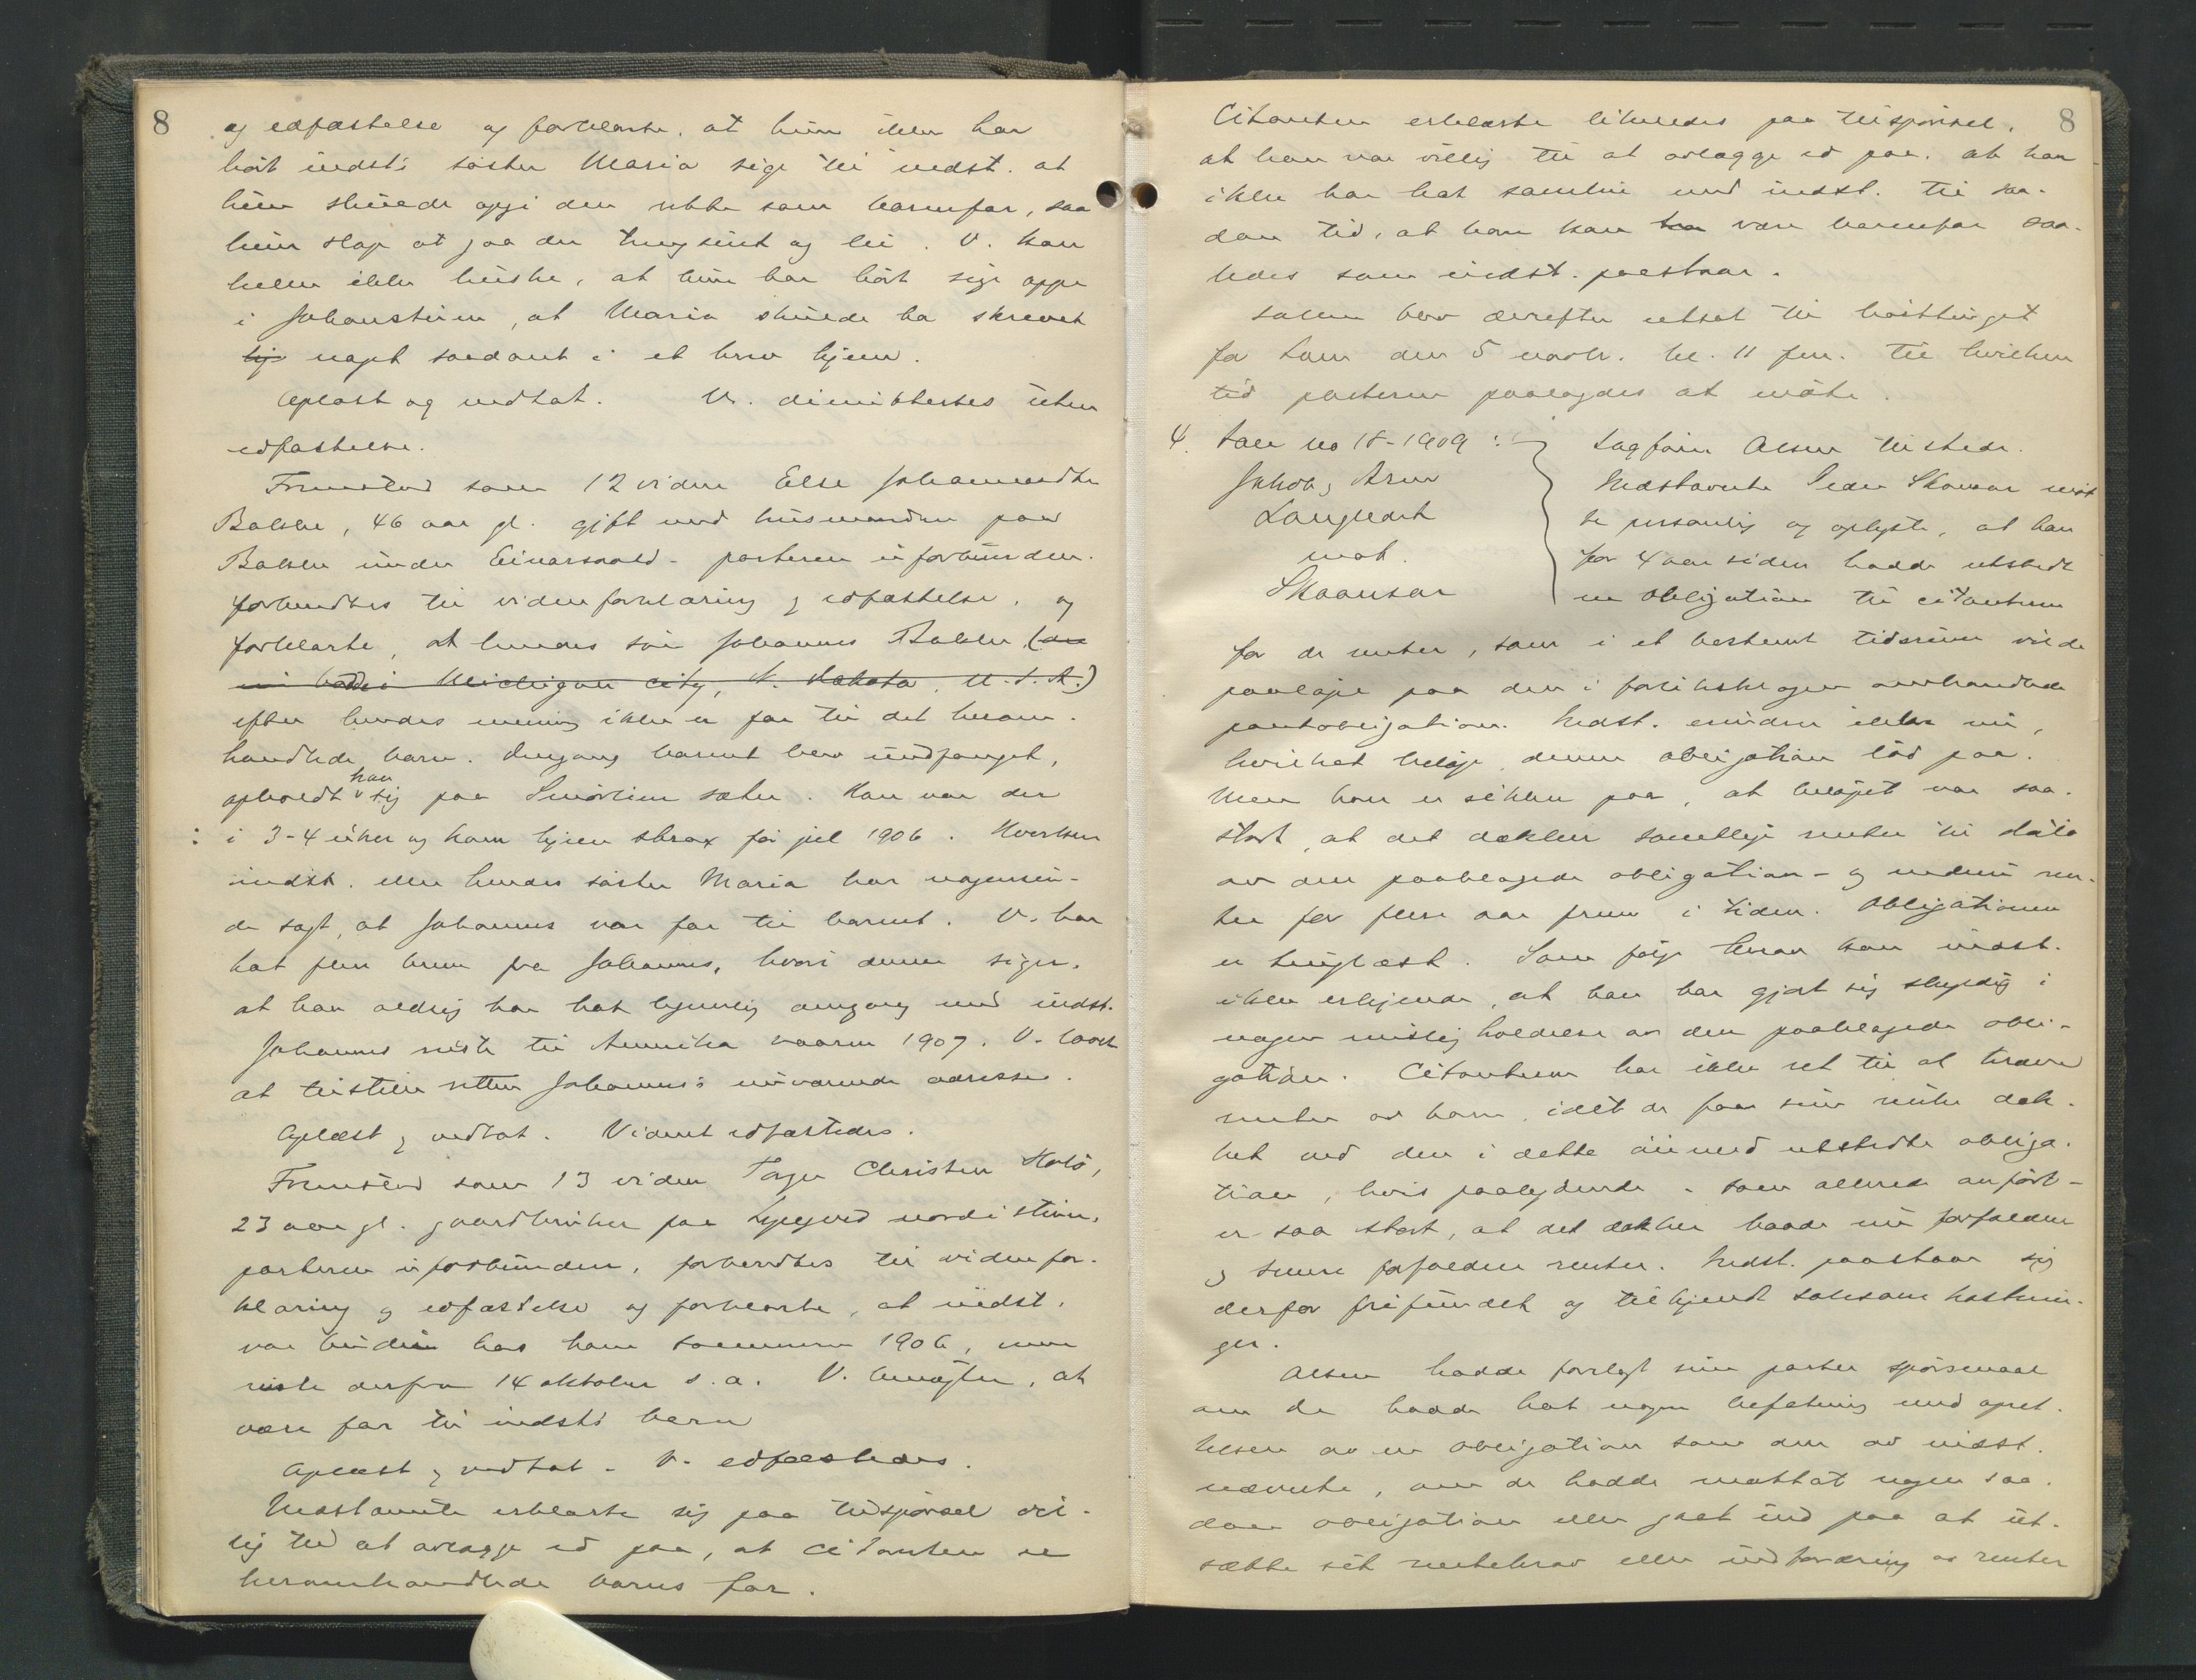 8
og edfæstelse og forklarte, at hun ikke har
hørt indst.s søster Maria sige til indst. at
hun skulde opgi den rette som barnefar, saa
hun slap at jaa der tung sindt og lei. V. kan
heller ikke huske, at hun har hørt sige oppe
i Johanstuen, at Maria skulde ha skrevet
hj noget saadant i et brev hjem.
Oplæst og vedtat. V. dimitteres uten
edfæstelse.
Fremstod som 12 vidne Else Johannesdtr
Bakken, 46 aar gl. gift med husmanden paa
Bakken under Einarsvold - parterne uforbunden.
formedtes til vidneforklaring og edfæstelse, og
forklarte, at hendes søn Johannes Bakken, (den
nu bodde i Michigan city, N. Dakota, U.S.A.)
efter hendes mening ikke er far til det heromhandlede
handlede barn. Dengang barnet blev undfanget,
opholdt han sig paa Smørlien sæter. Han var der
: i 3-4 uker og kom hjem strax før jul 1906. Hverken
indst. eller hendes søster Maria har nogensin-
de sagt, at Johannes var far til barnet. V. har
hat flere brev fra Johannes, hvori denne siger,
at han aldrig har hat legemlig omgang med indst.
Johannes reiste til Amerika vaaren 1907. V. lovet
at tilstille retten Johannes's nuværende adresse.
Oplæst og vedtat. Vidnet edfæstedes.
Fremstod som 13 vidne Torger Christen Holø,
23 aar gl. gaardbruker paa nordi
parterne uforbunden, formedtes til vidnefor-
klaring og edfæstelse og forklarte, at indst.
var budeie hos ham sommeren 1906, men
reiste derfra 14 oktober s.a. V. benegter, at
være far til indsts barn
Oplæst og vedtat - V. edfæstedes.
Indstævnte erklærte sig paa tilspørsel vil-
lig til at avlægge ed paa, at citanten er
heromhandlede barns far.
8
Citanten erklærte likeledes paa tilspørsel,
at han var villig til at avlægge ed paa, at han
ikke har hat samleie med indst. til saa-
dan tid, at han kan ha være barnefar saa-
ledes som indst. paastaar.
Saken blev derefter utsat til høsttinget
for Lom den 5 novbr. kl. 11 fm. til hvilken
tid parterne paalagdes at møte.
4. Sak no 18-1909:
Jakob og Arne
Langledet
mot.
Skaansar
Sagfører Olsen tilstede.
Indstævnte Peder Skaansar møt
te personlig og oplyste, at han
for 4 aar siden hadde utstedt
en obligation til citanterne
for de renter, som i et bestemt tidsrum vilde
paaløpe paa den i forliksklagen omhandlede
pantobligation. Indst. erindrer ikke nu,
hvilket beløp denne obligation lød paa.
Men han er sikker paa, at beløpet var saa
stort, at det dækker samtlige renter til dato
av den paaklagede obligation - og endnu ren-
ter for flere aar frem i tiden. Obligationen
er tinglæst. Som følge herav kan indst.
ikke erkjende, at han har gjort sig skyldig i
nogen mislig holdelse av den paaklagede obli-
gation. Citanterne har ikke ret til at kræve
renter av ham, idet de faar sine renter dæk-
ket ved den i dette øiemed utstedte obliga-
tion, hvis paalydende - som allerede anført -
er saa stort, at det dækker baade nu forfaldne
og senere forfaldne renter. Indst. paastaar sig
derfor frifundet og tilkjendt saksomkostnin-
ger.
Olsen hadde forelagt sine parter spørsmaal
om de hadde hat nogen befatning med opret-
telsen av en obligation som den av indst.
nævnte, om de hadde mottat nogen saa-
dan obligation eller gaat ind paa at ut-
sætte sit rentekrav eller indfordring av renter